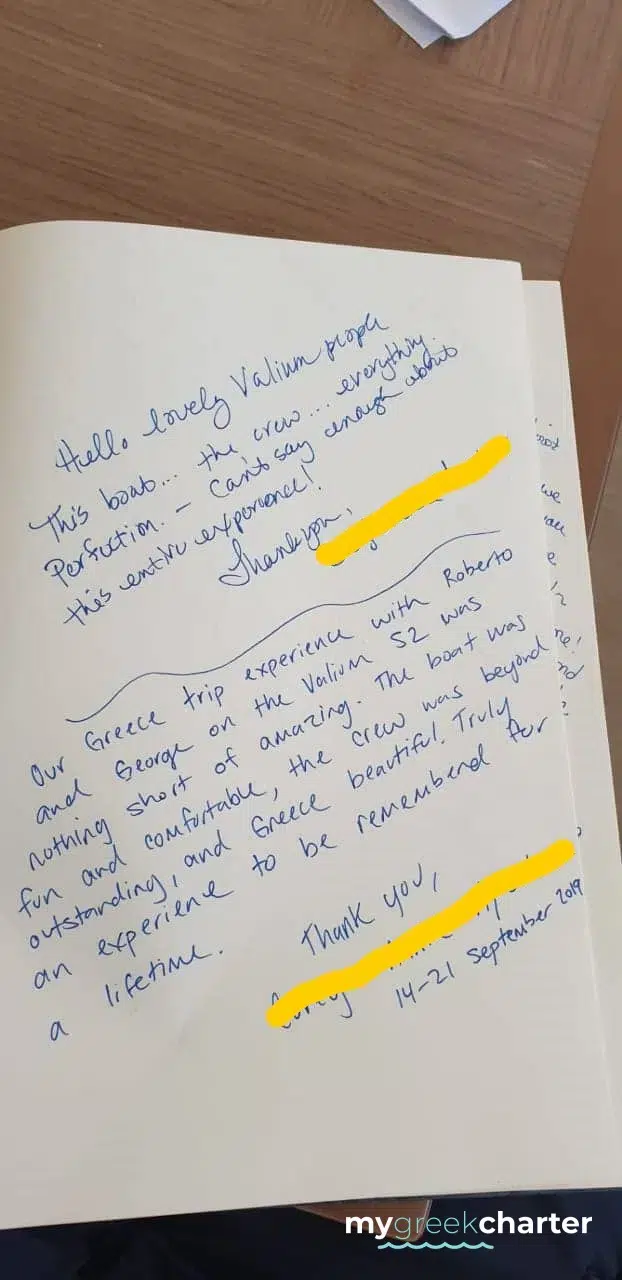 Hello lovely Valium people
This boat... the crew... everything.
Perfection. - Can't say enough about
this entire experience!
Thank you,
Our Greece trip experience with Roberto
and George on the Valium 52 was
nothing short of amazing. The boat was
fun and comfortable, the crew was beyond
outstanding, and Greece beautiful. Truly
an experience to be remembered for
a lifetime.
Thank you,
14-21 September 2019
mygreekcharter